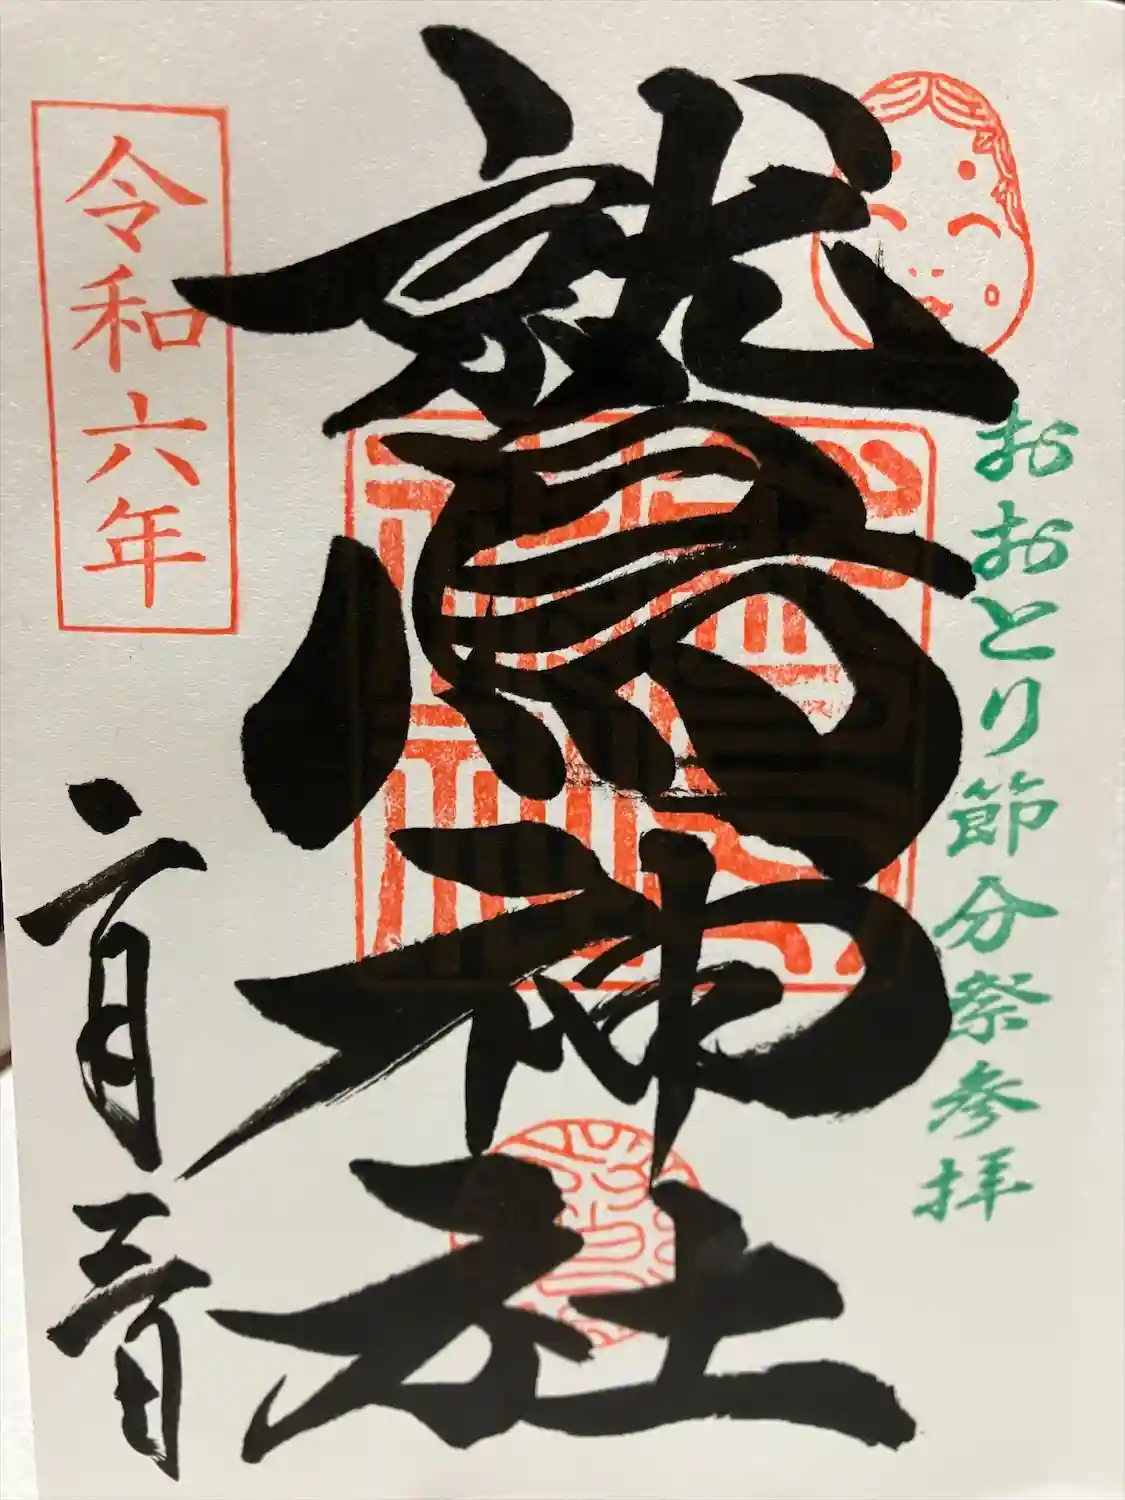 おおとり節分祭参拝
鷲神社
令和六年
二月三日